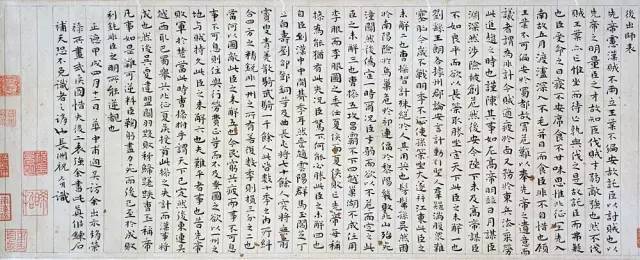 後出師表
先帝慮漢賊不兩立王業不偏安故託臣以討賊也以
先帝之明量臣之才故知臣伐賊才弱敵強也然不伐
賊王業亦亡惟坐而待亡孰與伐之是故託臣而弗疑
也臣受命之日寢不安席食不甘味思惟北征宜先入
南故五月渡瀘深入不毛并日而食臣非不自惜也顧
王業不可偏安於蜀都故冒危難以奉先帝之遺意而
議者謂為非計今賊適疲於西又務於東兵法乘勞
此進趨之時也謹陳其事如左高帝明並日月謀臣
淵深然涉險被創危然後安今陛下未及高帝謀臣
不如良平而欲以長策取勝坐定天下此臣之未解一也
劉繇王朗各據州郡論安言計動引聖人群疑滿腹眾難
塞胸今歲不戰明年不征使孫策坐大遂并江東此臣之
未解二也曹操智計殊絕於人其用兵也髣髴孫吳然困
於南陽險於烏巢危於祁連偪於黎陽幾敗北山殆死
潼關然後偽定一時爾況臣才弱而欲以不危而定之此
臣之未解三也曹操五攻昌霸不下四越巢湖不成任用
李服而李服圖之委任夏侯而夏侯敗亡先帝每稱
操為能猶有此失況臣駑下何能必勝此臣之未解四也
自臣到漢中中間期年耳然喪趙雲陽群馬玉閻芝丁
立白壽劉郃鄧銅等及曲長屯將七十餘人突將無前
賨叟青羌散騎武騎一千餘人此皆數十年之內所糾
合四方之精銳非一州之所有若復數年則損三分之二也
當何以圖敵此臣之未解五也今民窮兵疲而事不可息
事不可息則住與行勞費正等而不及今圖之欲以一州之
地與賊持久此臣之未解六也夫難平者事也昔先帝
敗軍於楚當此時曹操拊手謂天下已定然後先帝東連吳
越西取巴蜀舉兵北征夏侯授首此操之失計而漢事將
成也然後吳更違盟關羽毀敗秭歸蹉跌曹丕稱帝
凡事如是難可逆料臣鞠躬盡力死而後已至於成敗
利鈍非臣之明所能逆覩也
正德甲戌四月十日